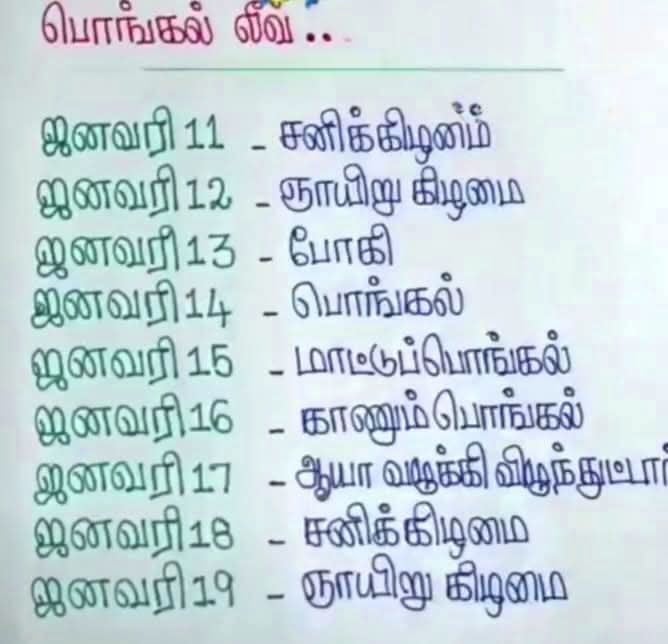 பொங்கல் லீவ...
ஜனவரி 11 - சனிக்கிழமை
ஜனவரி 12 - ஞாயிறு கிழமை
ஜனவரி 13 - போகி
ஜனவரி 14 - பொங்கல்
ஜனவரி 15 - மாட்டுப்பொங்கல்
ஜனவரி 16 - காணும் பொங்கல்
ஜனவரி 17 - ஆயா வழுக்கி விழுந்துட்டார்
ஜனவரி 18 - சனிக்கிழமை
ஜனவரி 19 - ஞாயிறு கிழமை